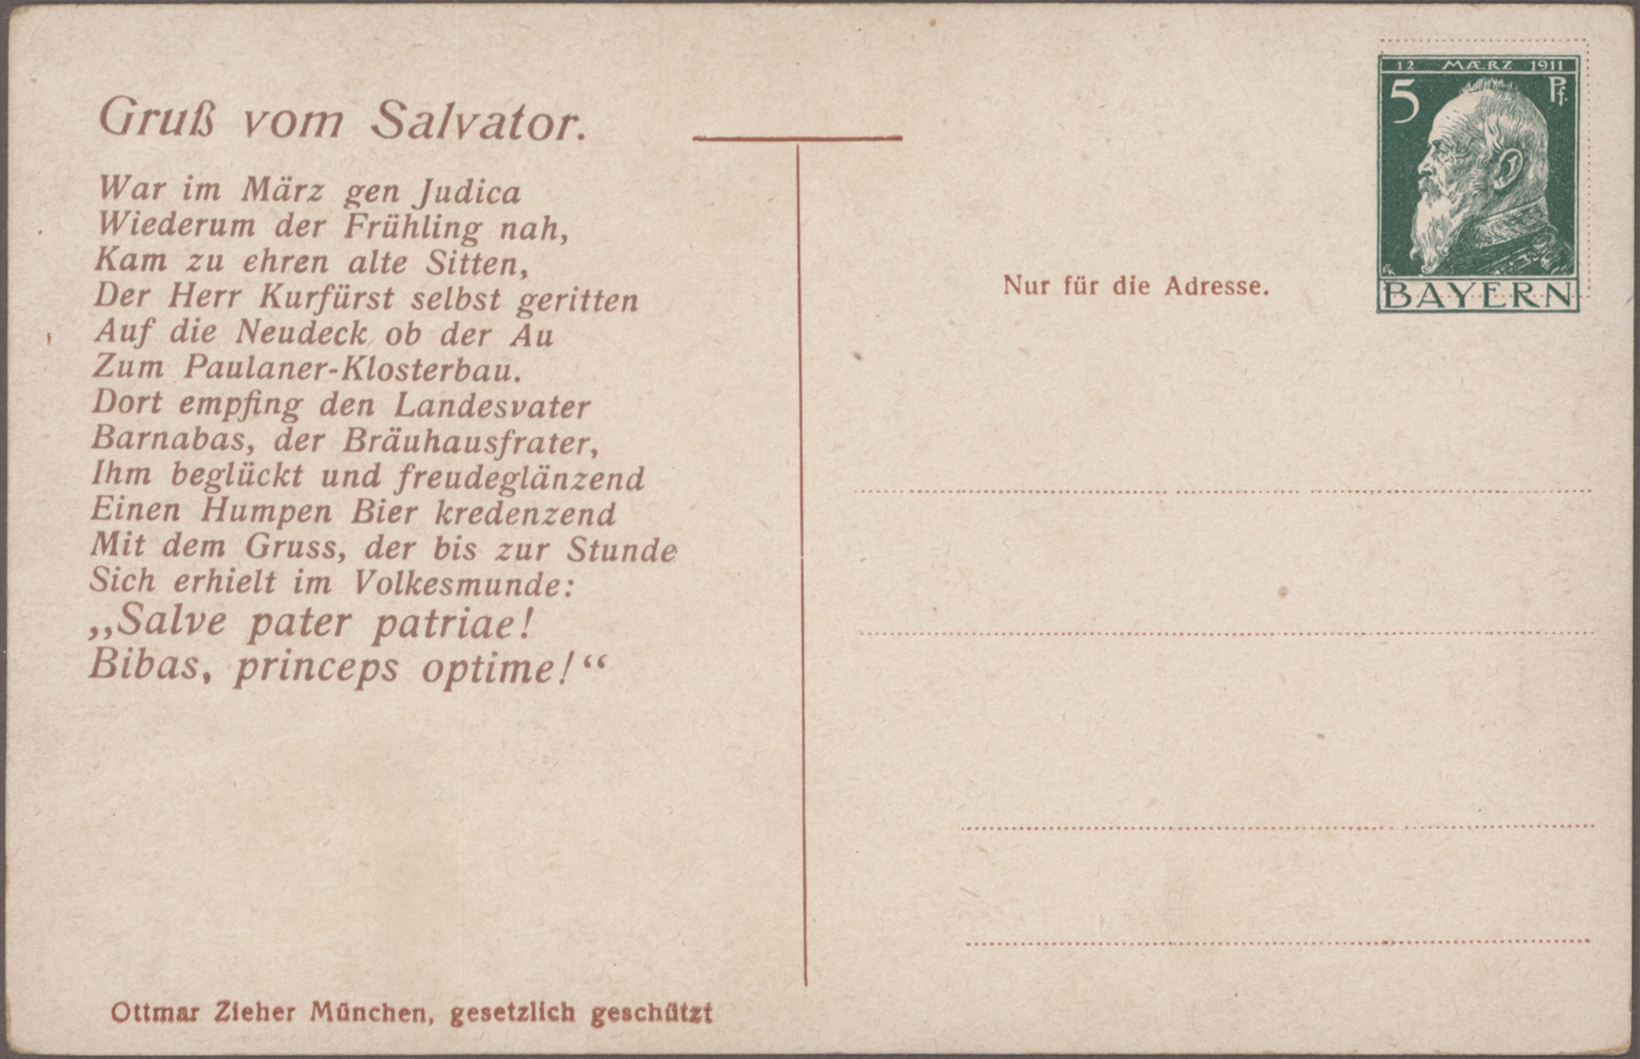 Gruß vom Salvator.
War im März gen Judica
Wiederum der Frühling nah,
Kam zu ehren alte Sitten,
Der Herr Kurfürst selbst geritten
Auf die Neudeck ob der Au
Zum Paulaner-Klosterbau.
Dort empfing den Landesvater
Barnabas, der Bräuhausfrater,
Ihm beglückt und freudeglänzend
Einen Humpen Bier kredenzend
Mit dem Gruss, der bis zur Stunde
Sich erhielt im Volkesmunde:
„Salve pater patriae!
Bibas, princeps optime!“
Ottmar Zieher München, gesetzlich geschützt
12 MÆRZ 1911
5 Pf.
BAYERN
Nur für die Adresse.